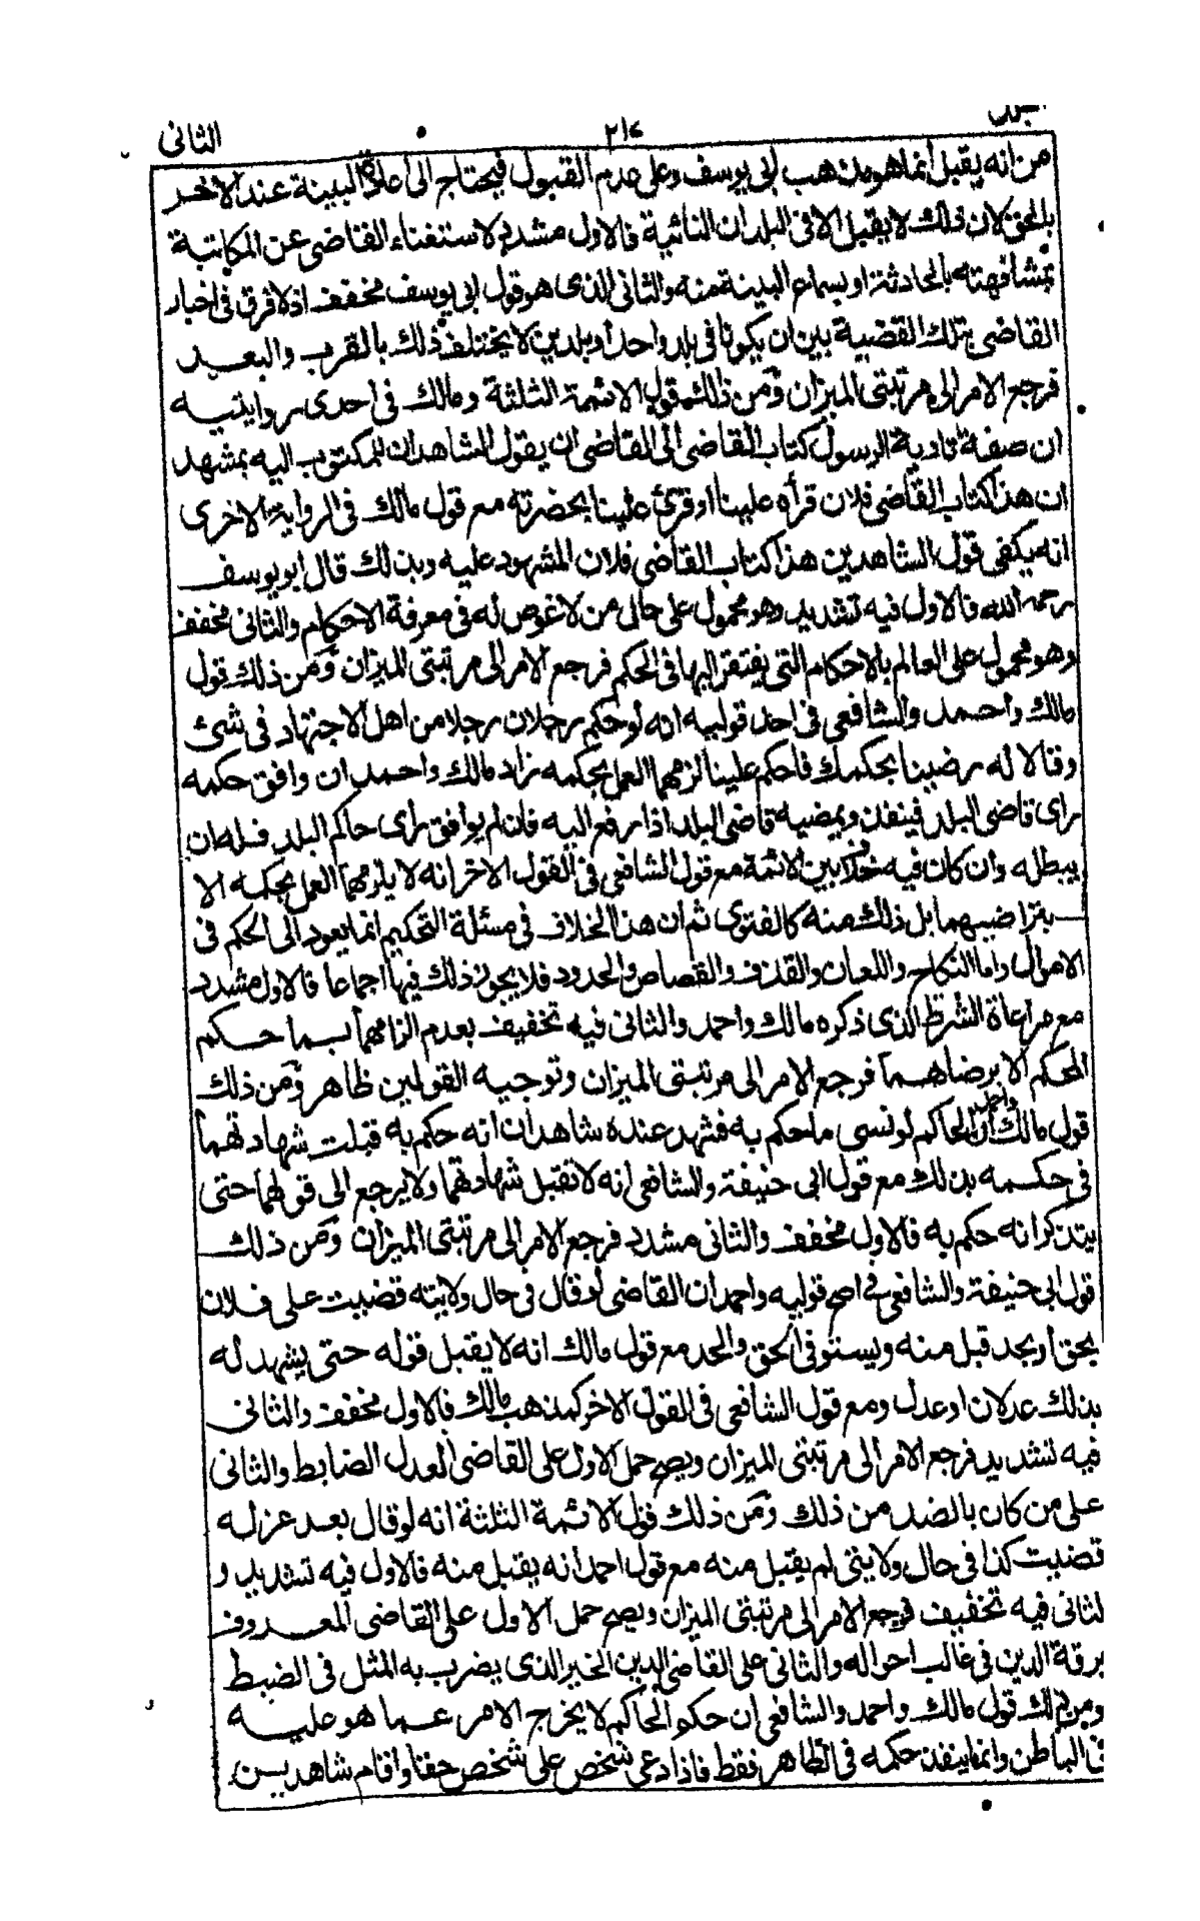 الجلد ٢١٧ الثانى
من انه يقبل انما هو مذهب ابى يوسف وعلى عدم القبول فيحتاج الى اعادة البينة عند الاخر
بالحق لان ذلك لا يقبل الا فى البلدان النائية فالاول مشدد لاستغناء القاضى عن المكاتبة
بمشافهته بالحادثة او بسماع البينة منه والثانى الذى هو قول ابى يوسف مخفف اذ لا فرق فى اخبار
القاضى بتلك القضية بين ان يكونا فى بلد واحد او بلدين لا يختلف ذلك بالقرب والبعد
فرجع الامر الى مرتبتى الميزان ومن ذلك قول الائمة الثلثة ومالك فى احدى روايتيه
ان صفة تادية الرسول كتاب القاضى الى القاضى ان يقول الشاهدان للمكتوب اليه نشهد
ان هذا كتاب القاضى فلان قرأه علينا او قرئ علينا بحضرته مع قول مالك فى الرواية الاخرى
انه يكفى قول الشاهدين هذا كتاب القاضى فلان المشهود عليه وبذلك قال ابو يوسف
رحمه الله فالاول فيه تشديد وهو محمول على حال من لا غوص له فى معرفة الاحكام والثانى مخفف
وهو محمول على العالم بالاحكام التى يفتقر اليها فى الحكم فرجع الامر الى مرتبتى الميزان ومن ذلك قول
مالك واحمد والشافعى فى احد قوليه انه لو حكم رجلان رجلا من اهل الاجتهاد فى شئ
وقالا له رضينا بحكمك فاحكم علينا لزمهما العمل بحكمه زاد مالك واحمد ان وافق حكمه
راى قاضى البلد فينفذ ويمضيه قاضى البلد اذا رفع اليه فان لم يوافق رأى حاكم البلد فله ان
يبطله وان كان فيه خلاف بين الائمة مع قول الشافعى فى القول الاخر انه لا يلزمهما العمل بحكمه الا
بتراضيهما بل ذلك منه كالفتوى ثم ان هذا الخلاف فى مسئلة التحكيم انما يعود الى الحكم فى
الاموال واما النكاح واللعان والقذف والقصاص والحدود فلا يجوز ذلك فيها اجماعا فالاول مشدد
مع مراعاة الشرط الذى ذكره مالك واحمد والثانى فيه تخفيف بعدم الزامهما بما حكم
المحكم الا برضاهما فرجع الامر الى مرتبتى الميزان وتوجيه القولين ظاهر ومن ذلك
قول مالك واحمد ان الحاكم لو نسى ما حكم به فشهد عنده شاهدان انه حكم به قبلت شهادتهما
فى حكمه بذلك مع قول ابى حنيفة والشافعى انه لا تقبل شهادتهما ولا يرجع الى قولهما حتى
يتذكر انه حكم به فالاول مخفف والثانى مشدد فرجع الامر الى مرتبتى الميزان ومن ذلك
قول ابى حنيفة والشافعى فى اصح قوليه واحمد ان القاضى لو قال فى حال ولايته قضيت على فلان
بحق او بحد قبل منه ويستوفى الحق والحد مع قول مالك انه لا يقبل قوله حتى يشهد له
بذلك عدلان او عدل ومع قول الشافعى فى القول الاخر كمذهب مالك فالاول مخفف والثانى
فيه تشديد فرجع الامر الى مرتبتى الميزان ويصح حمل الاول على القاضى العدل الضابط والثانى
على من كان بالضد من ذلك ومن ذلك قول الائمة الثلثة انه لو قال بعد عزله
قضيت كذا فى حال ولايتى لم يقبل منه مع قول احمد انه يقبل منه فالاول فيه تشديد و
لثانى فيه تخفيف فرجع الامر الى مرتبتى الميزان ويصح حمل الاول على القاضى المعروف
برقة الدين فى غالب احواله والثانى على القاضى الدين الخير الذى يضرب به المثل فى الضبط
ومن ذلك قول مالك واحمد والشافعى ان حكم الحاكم لا يخرج الامر عما هو عليه
فى الباطن وانما ينفذ حكمه فى الظاهر فقط فاذا ادعى شخص على شخص حقا واقام شاهدين